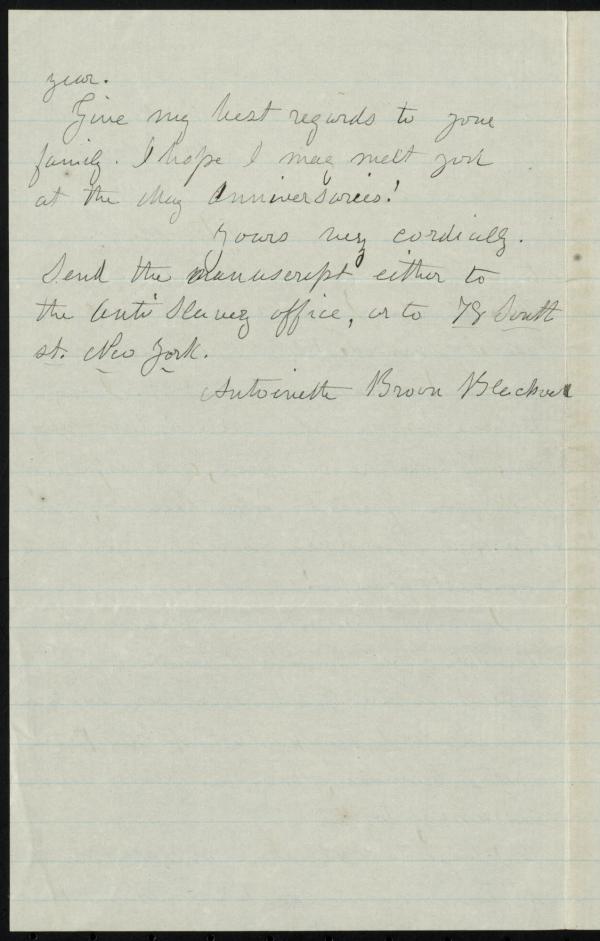 year.
Give my best regards to your
family. I hope I may meet you
at the May Anniversaries!
Yours very cordially.
Send the manuscript either to
the Anti Slavery office, or to 78 South
st. New York.
Antoinette Brown Blackwell